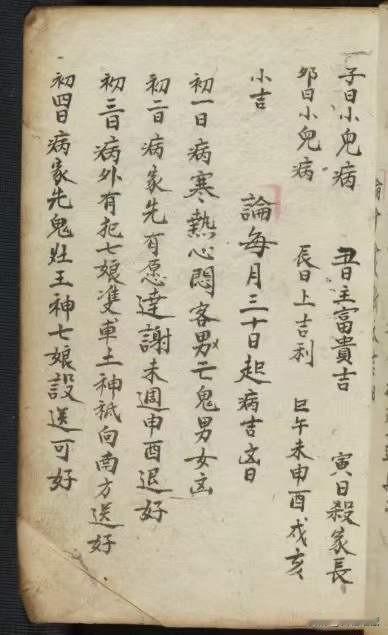 子日小兒病　丑日主富貴吉　寅日殺家長
卯日小兒病　辰日上吉利　巳午未申酉戌亥
小吉
論每月三十日起病吉凶日
初一日病寒熱心悶客男亡鬼男女凶
初二日病家先有愿達謝未週申酉退好
初三日病外有犯七娘隻車土神祇向南方送好
初四日病家先鬼灶王神七娘設送可好